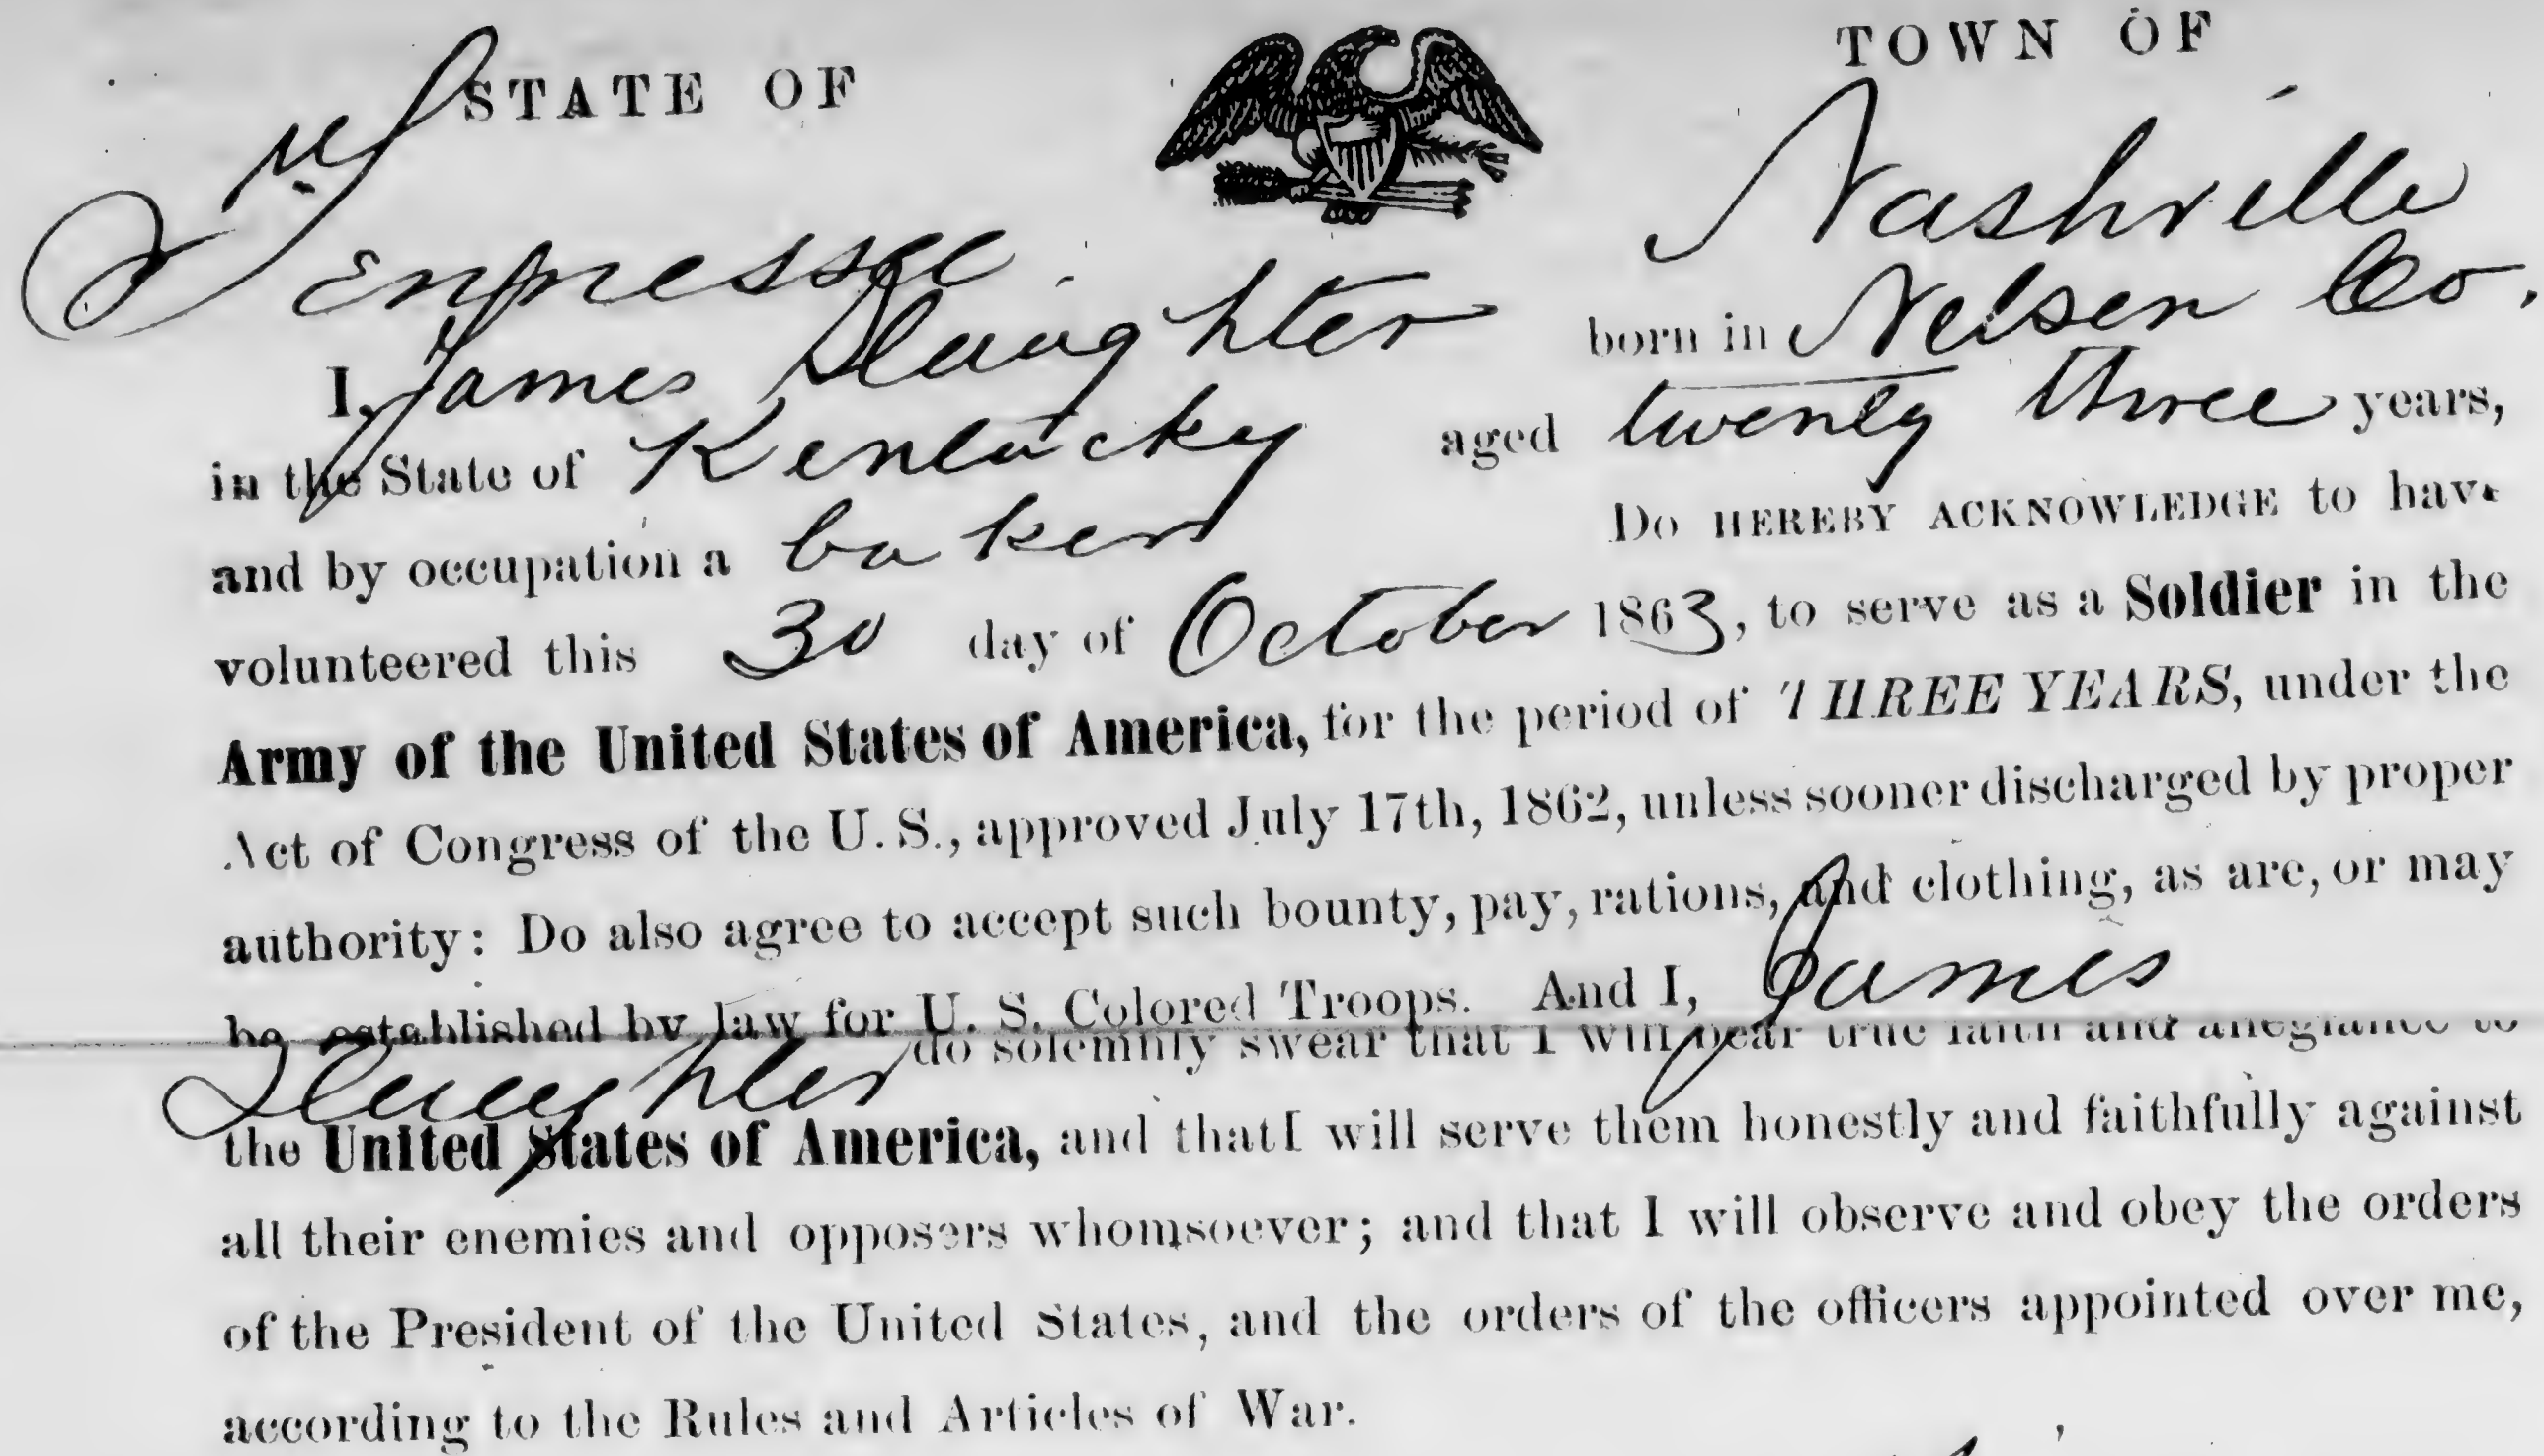 STATE OF
TOWN OF
Tennessee
Nashville
I, James Slaughter born in Nelsen Co.
in the State of Kentucky aged twenty three years,
and by occupation a baker Do HEREBY ACKNOWLEDGE to have
volunteered this 30 day of October 1863, to serve as a Soldier in the
Army of the United States of America, for the period of THREE YEARS, under the
Act of Congress of the U. S., approved July 17th, 1862, unless sooner discharged by proper
authority: Do also agree to accept such bounty, pay, rations, and clothing, as are, or may
be established by law for U. S. Colored Troops. And I, James
Slaughter do solemnly swear that I will bear true faith and allegiance to
the United States of America, and that I will serve them honestly and faithfully against
all their enemies and opposers whomsoever; and that I will observe and obey the orders
of the President of the United States, and the orders of the officers appointed over me,
according to the Rules and Articles of War.